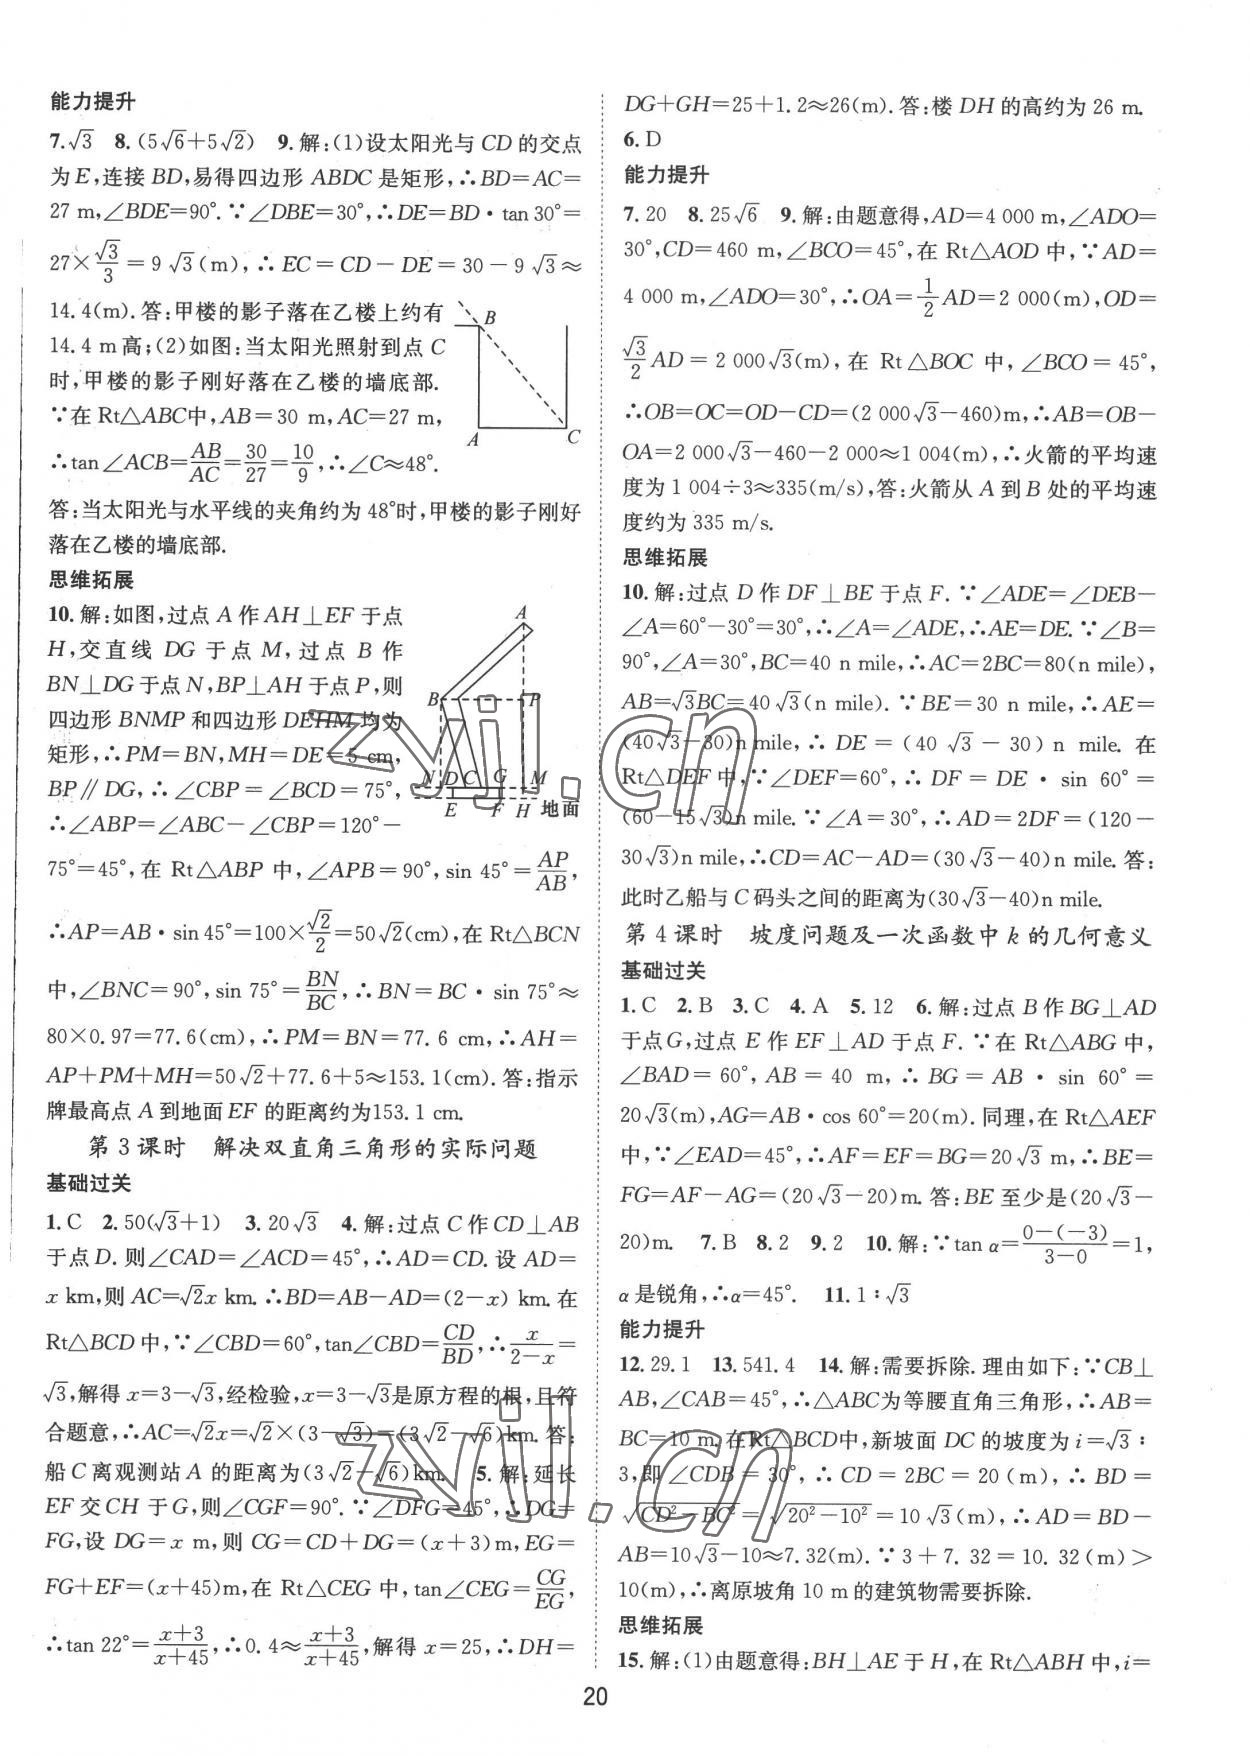 能力提升
7.√3  8.(5√6+5√2)  9.解:(1)设太阳光与 CD 的交点
为 E,连接 BD,易得四边形 ABDC 是矩形,∴BD=AC=
27 m,∠BDE=90°.∵∠DBE=30°,∴DE=BD·tan 30°=
27×√3/3=9√3(m),∴EC=CD-DE=30-9√3≈
14.4(m).答:甲楼的影子落在乙楼上约有
14.4 m高;(2)如图:当太阳光照射到点 C
时,甲楼的影子刚好落在乙楼的墙底部.
∵在 Rt△ABC中,AB=30 m,AC=27 m,
∴tan∠ACB=AB/AC=30/27=10/9,∴∠C≈48°.
B
A
C
答:当太阳光与水平线的夹角约为 48°时,甲楼的影子刚好
落在乙楼的墙底部.
思维拓展
10.解:如图,过点 A 作 AH⊥EF 于点
H,交直线 DG 于点 M,过点 B 作
BN⊥DG于点 N,BP⊥AH于点 P,则
四边形 BNMP 和四边形 DEHM 均为
矩形,∴PM=BN,MH=DE=5 cm,
BP∥DG,∴∠CBP=∠BCD=75°,
∴∠ABP=∠ABC-∠CBP=120°-
A
B
P
N D C G M
E F H 地面
75°=45°,在 Rt△ABP 中,∠APB=90°,sin 45°=AP/AB,
∴AP=AB·sin 45°=100×√2/2=50√2(cm),在 Rt△BCN
中,∠BNC=90°,sin 75°=BN/BC,∴BN=BC·sin 75°≈
80×0.97=77.6(cm),∴PM=BN=77.6 cm,∴AH=
AP+PM+MH=50√2+77.6+5≈153.1(cm).答:指示
牌最高点 A 到地面 EF 的距离约为153.1 cm.
第 3 课时 解决双直角三角形的实际问题
基础过关
1.C  2.50(√3+1)  3.20√3  4.解:过点 C 作 CD⊥AB
于点 D.则∠CAD=∠ACD=45°,∴AD=CD.设 AD=
x km,则 AC=√2x km.∴BD=AB-AD=(2-x) km.在
Rt△BCD 中,∵∠CBD=60°,tan∠CBD=CD/BD,∴x/(2-x)=
√3,解得 x=3-√3,经检验,x=3-√3是原方程的根,且符
合题意,∴AC=√2x=√2×(3-√3)=(3√2-√6)km.答:
船 C 离观测站 A 的距离为(3√2-√6)km.  5.解:延长
EF 交 CH 于 G,则∠CGF=90°.∵∠DFG=45°,∴DG=
FG,设 DG=x m,则 CG=CD+DG=(x+3)m,EG=
FG+EF=(x+45)m,在 Rt△CEG 中,tan∠CEG=CG/EG,
∴tan 22°=(x+3)/(x+45),∴0.4≈(x+3)/(x+45),解得 x=25,∴DH=
DG+GH=25+1.2≈26(m).答:楼 DH 的高约为 26 m.
6.D
能力提升
7.20  8.25√6  9.解:由题意得,AD=4 000 m,∠ADO=
30°,CD=460 m,∠BCO=45°,在 Rt△AOD 中,∵AD=
4 000 m,∠ADO=30°,∴OA=1/2AD=2 000(m),OD=
√3/2AD=2 000√3(m),在 Rt△BOC 中,∠BCO=45°,
∴OB=OC=OD-CD=(2 000√3-460)m,∴AB=OB-
OA=2 000√3-460-2 000≈1 004(m),∴火箭的平均速
度为 1 004÷3≈335(m/s),答:火箭从 A 到 B 处的平均速
度约为 335 m/s.
思维拓展
10.解:过点 D 作 DF⊥BE 于点 F.∵∠ADE=∠DEB-
∠A=60°-30°=30°,∴∠A=∠ADE,∴AE=DE.∵∠B=
90°,∠A=30°,BC=40 n mile,∴AC=2BC=80(n mile),
AB=√3BC=40√3(n mile).∵BE=30 n mile,∴AE=
(40√3-30)n mile,∴DE=(40√3-30) n mile.在
Rt△DEF 中,∵∠DEF=60°,∴DF=DE·sin 60°=
(60-15√3)n mile.∵∠A=30°,∴AD=2DF=(120-
30√3)n mile,∴CD=AC-AD=(30√3-40)n mile.答:
此时乙船与 C 码头之间的距离为(30√3-40)n mile.
第 4 课时 坡度问题及一次函数中 k 的几何意义
基础过关
1.C  2.B  3.C  4.A  5.12  6.解:过点 B 作 BG⊥AD
于点 G,过点 E 作 EF⊥AD 于点 F.∵在 Rt△ABG 中,
∠BAD=60°,AB=40 m,∴BG=AB·sin 60°=
20√3(m),AG=AB·cos 60°=20(m).同理,在 Rt△AEF
中,∵∠EAD=45°,∴AF=EF=BG=20√3 m,∴BE=
FG=AF-AG=(20√3-20)m.答:BE 至少是(20√3-
20)m.  7.B  8.2  9.2  10.解:∵tan α=(0-(-3))/(3-0)=1,
α是锐角,∴α=45°.  11.1∶√3
能力提升
12.29.1  13.541.4  14.解:需要拆除.理由如下:∵CB⊥
AB,∠CAB=45°,∴△ABC为等腰直角三角形,∴AB=
BC=10 m.在Rt△BCD中,新坡面 DC 的坡度为 i=√3∶
3,即∠CDB=30°,∴CD=2BC=20(m),∴BD=
√(CD²-BC²)=√(20²-10²)=10√3(m),∴AD=BD-
AB=10√3-10≈7.32(m).∵3+7.32=10.32(m)>
10(m),∴离原坡角 10 m 的建筑物需要拆除.
思维拓展
15.解:(1)由题意得:BH⊥AE 于 H,在 Rt△ABH 中,i=
zyjl.cn
zyjl.cn
20